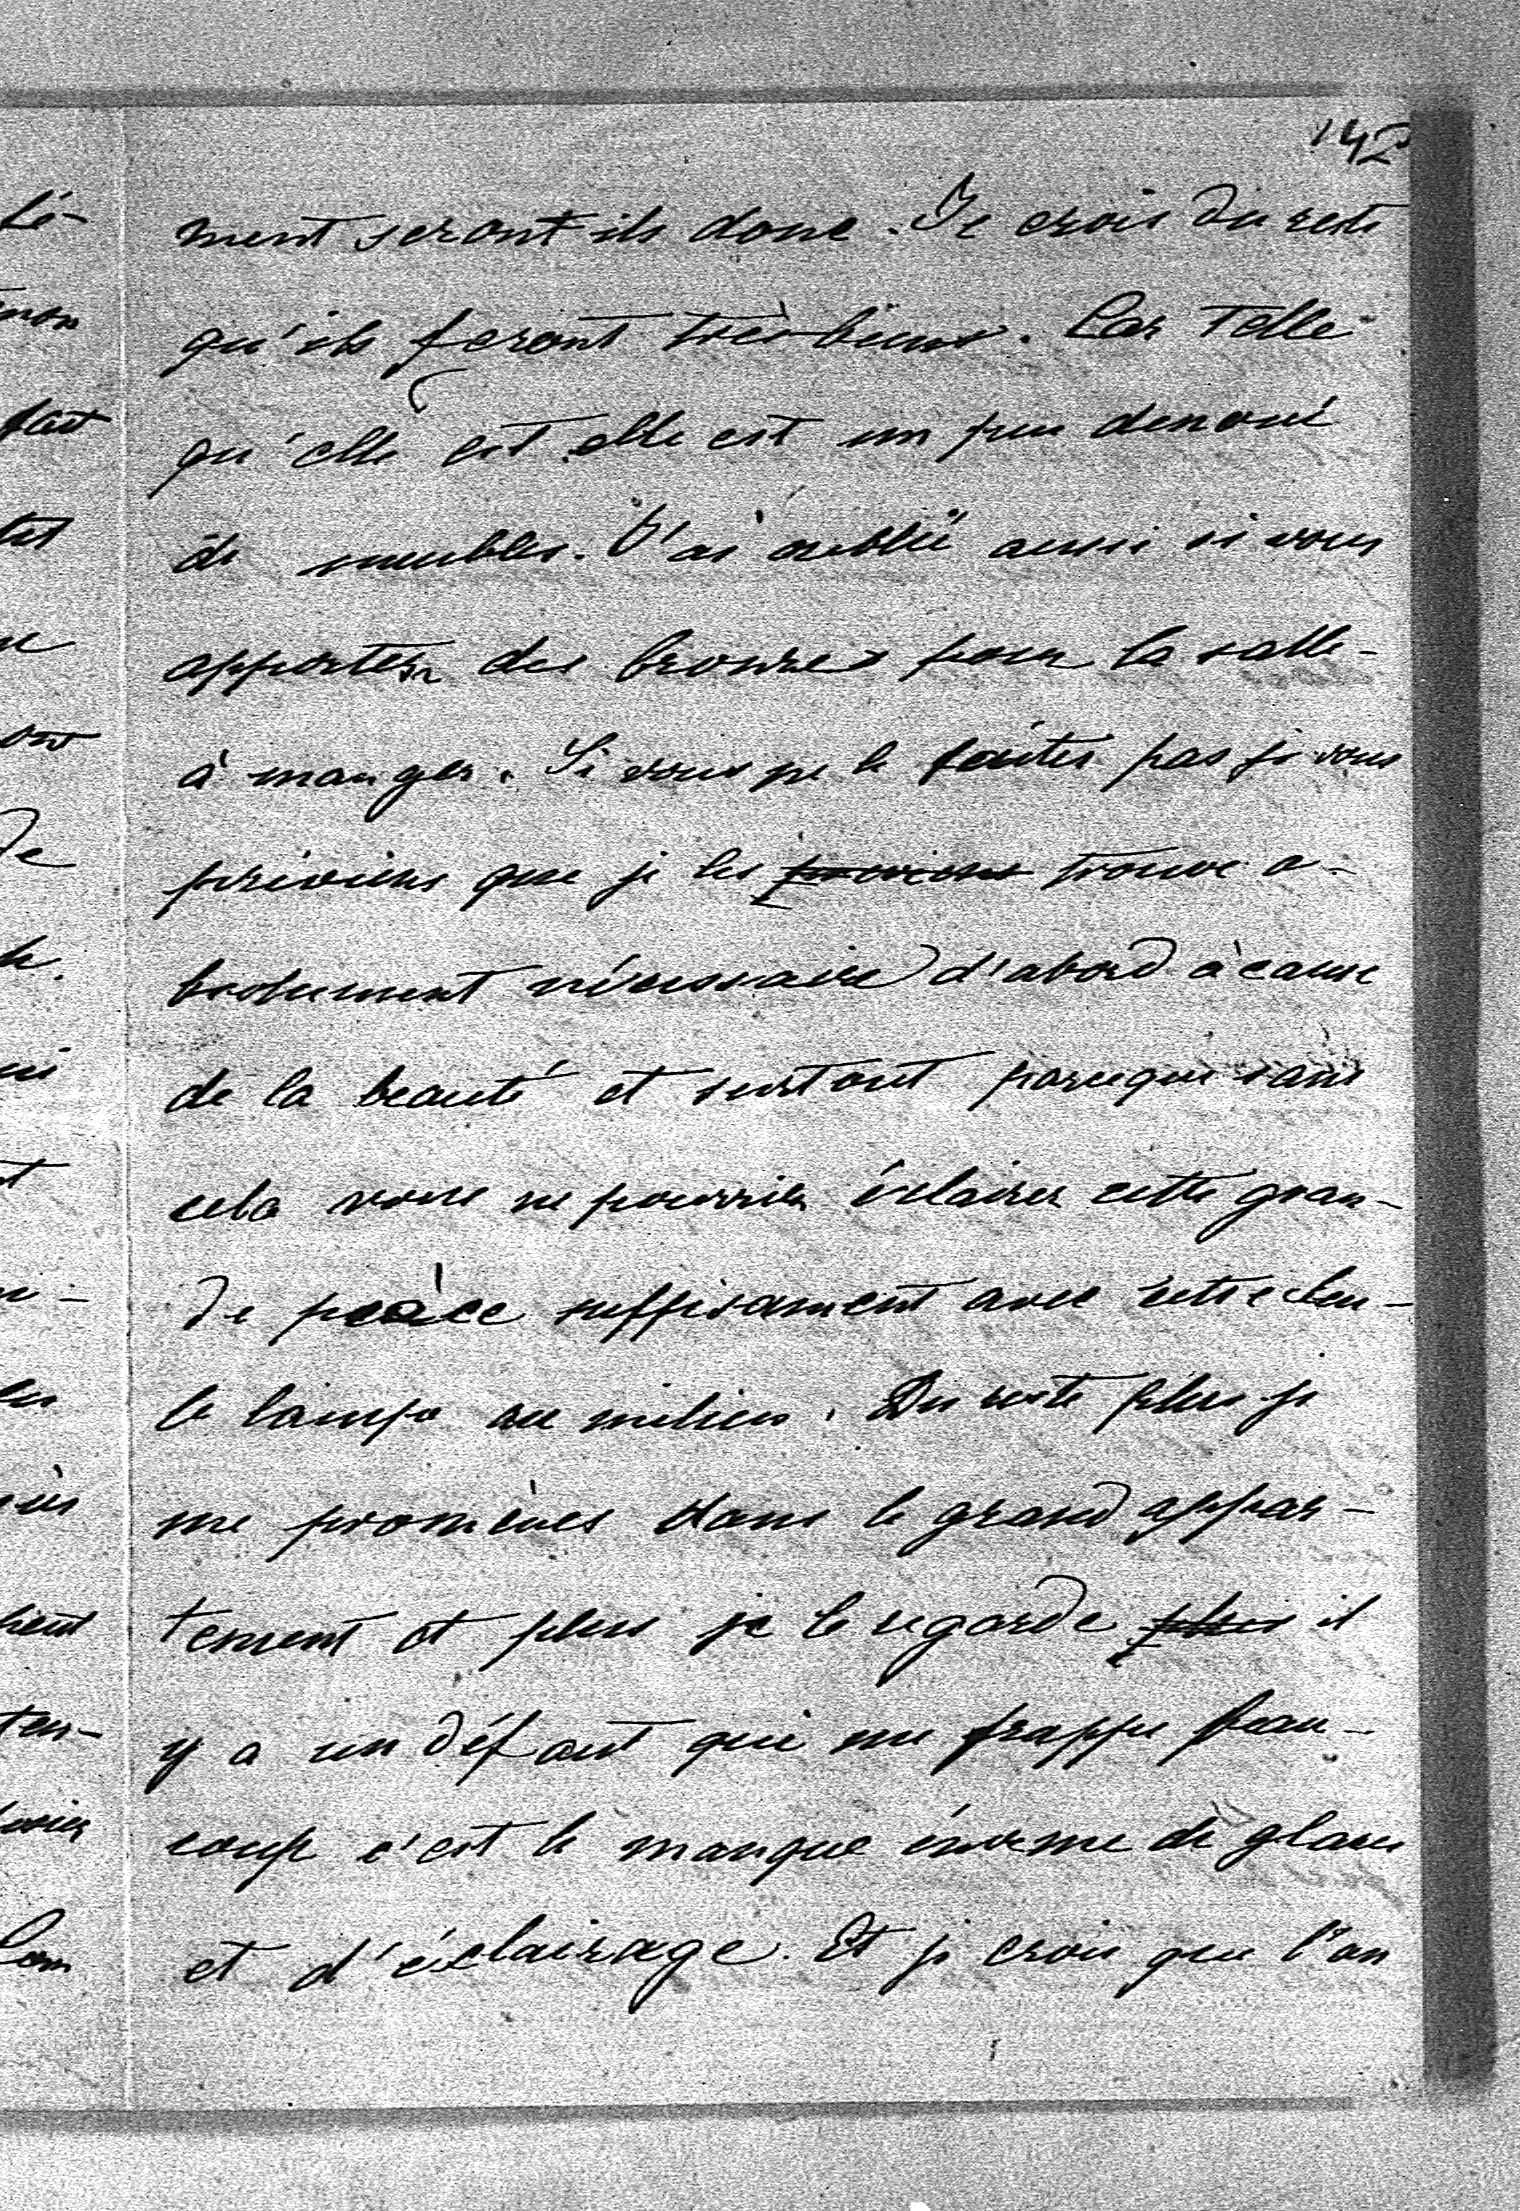 142
ment seront ils donc. Je crois du reste
qu'ils feront très biens. Car telle
qu'elle est elle est un peu denoué
de meubles. J'ai oublié aussi si vous
apportez des bronzes pour la salle-
à manger. Si vous ne le faites pas je vous
préviens que je les trouve a-
bsolument nécessaire d'abord à cause
de la beauté et surtout parceque sans
cela vous ne pourriez éclairer cette gran-
de pièce suffisament avec cette seu-
le lampe au milieu. Du reste plus je
me promènes dans le grand appar-
tement et plus je le regarde plus il
y a un défaut qui me frappe beau-
coup c'est le manque énorme de glaces
et d'éclairage. Et je crois que l'on